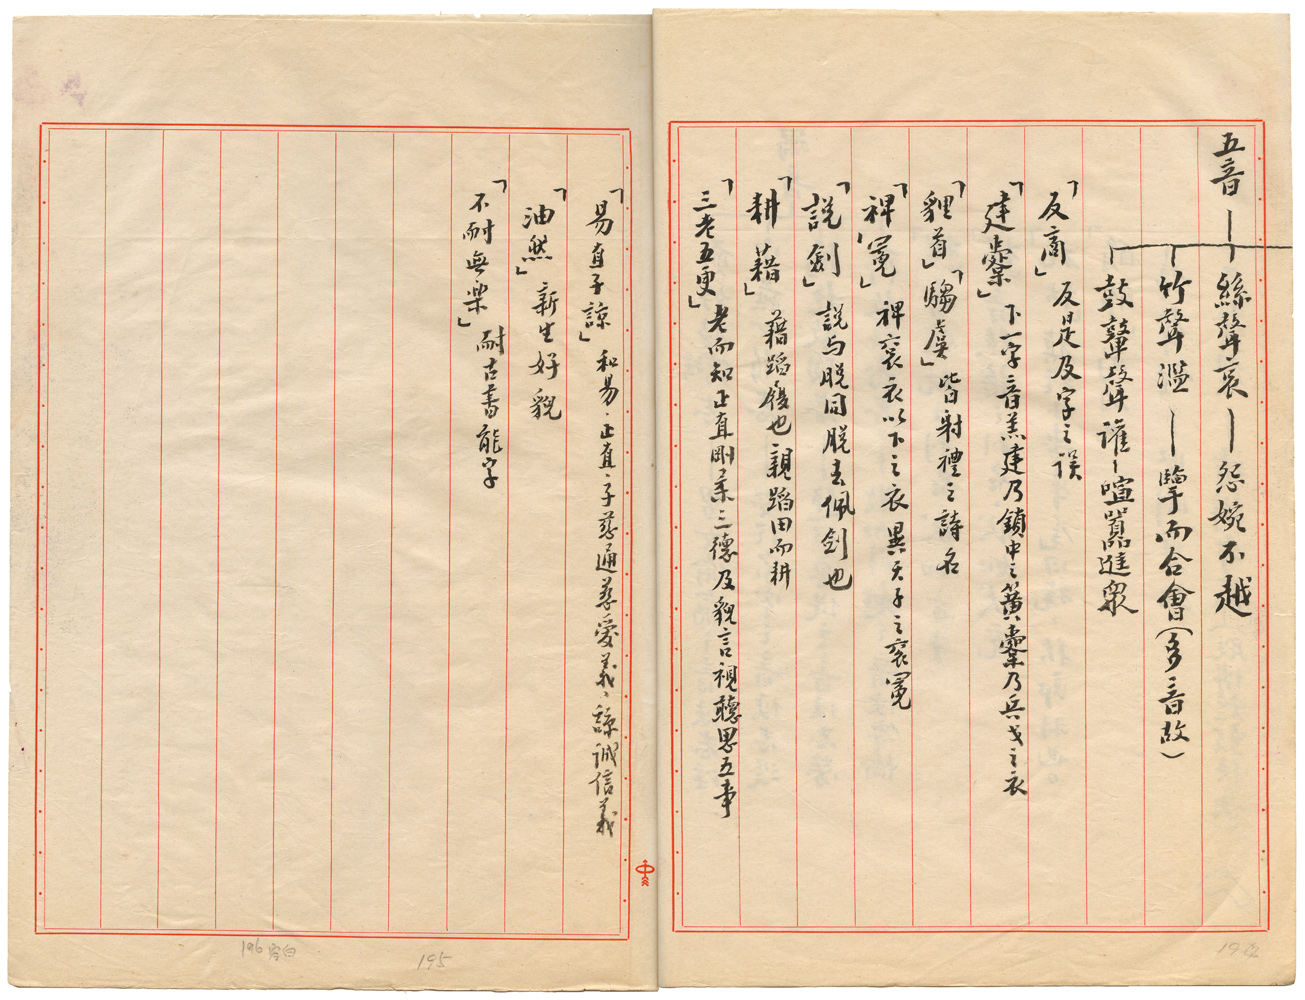 五音—絲聲哀—怨婉不越
竹聲濫—擥而合會(多音故)
鼓鼙聲讙—喧囂進衆
「反商」反是及字之誤
「建櫜」下一字音羔建乃鎖中之簧櫜乃兵戈之衣
「貍首」「騶虞」皆射禮之詩名
「裨冕」裨衮衣以下之衣異天子之衮冕
「說劍」說与脱同脱去佩劍也
「耕藉」藉蹈履也親蹈田而耕
「三老五更」老而知正直剛柔三德及貌言視聽思五事
「易直子諒」和易、正直、子慈通慈愛義、諒誠信義
「油然」新生好貌
「不耐無樂」耐古書能字
195
196空白